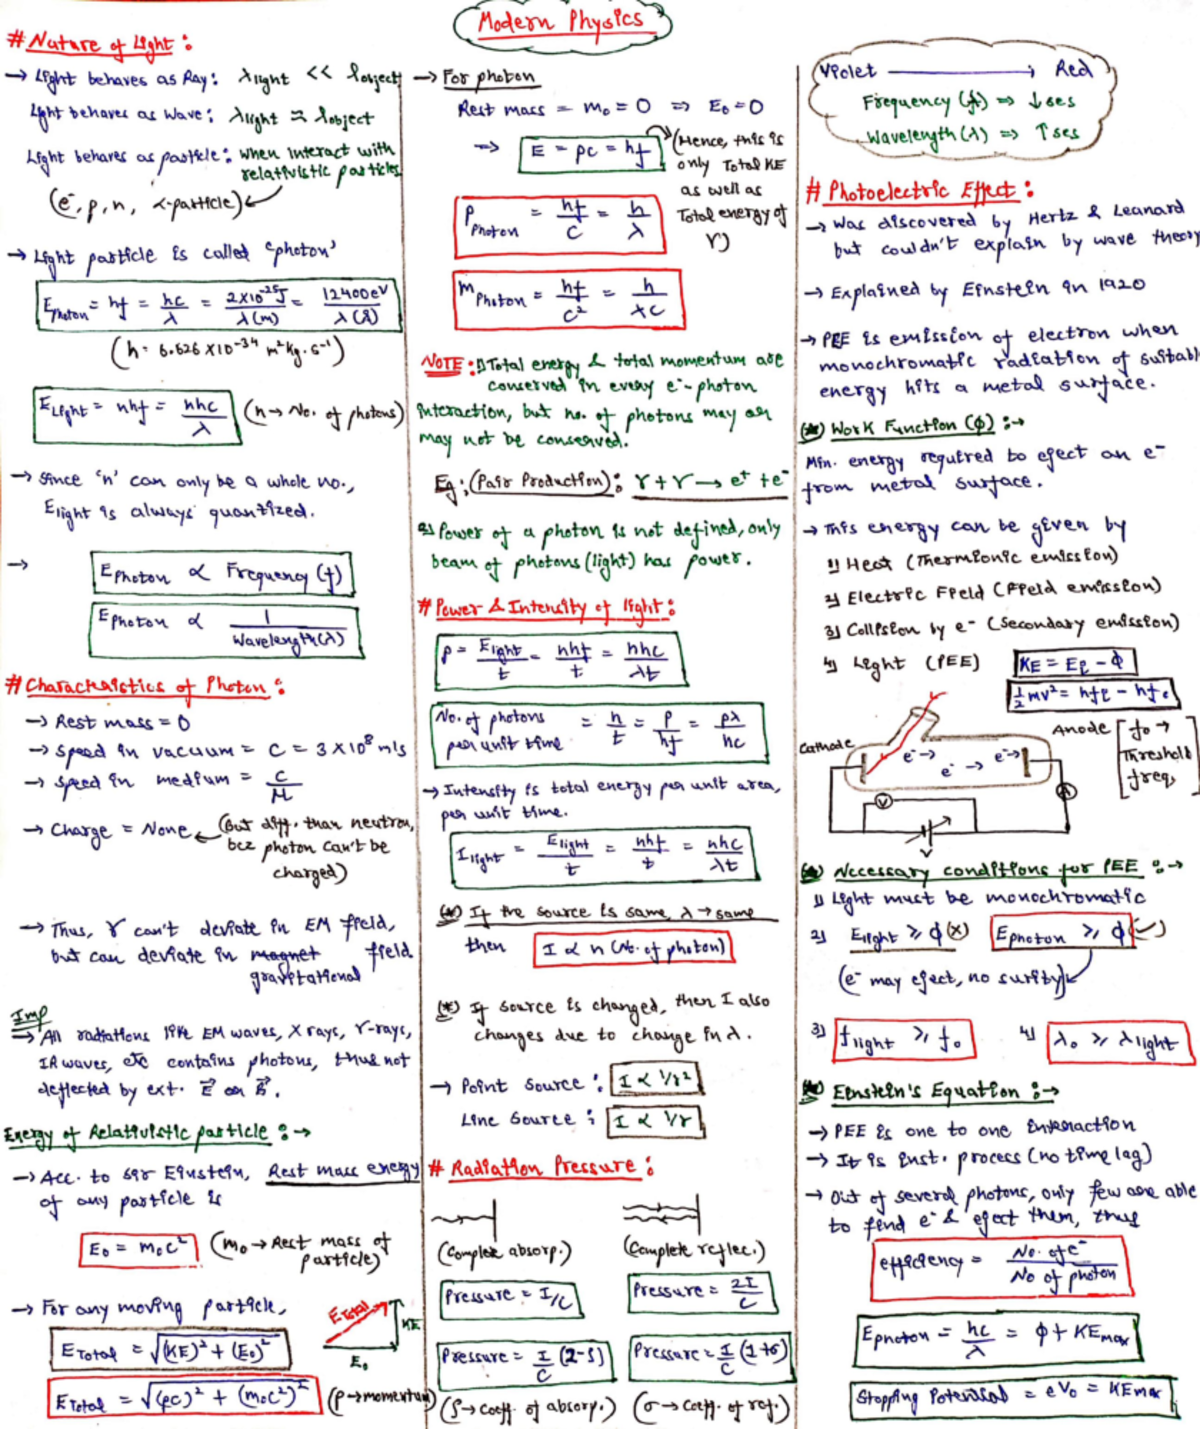 Modern Physics
# Nature of Light :
→ Light behaves as Ray: λlight << lobject
Light behaves as Wave: λlight ≈ λobject
Light behaves as particle: when interact with
relativistic particles
(e⁻, p, n, α-particle)
→ Light particle is called 'photon'
EPhoton = hf = hc/λ = 2×10⁻²⁵J/λ(m) = 12400eV/λ(Å)
(h = 6.626 ×10⁻³⁴ m²kg.s⁻¹)
ELight = nhf = nhc/λ (n → No. of photons)
→ Since 'n' can only be a whole no.,
Elight is always quantized.
→ EPhoton ∝ Frequency (f)
EPhoton ∝ 1/Wavelength(λ)
# Characteristics of Photon :
→ Rest mass = 0
→ Speed in vacuum = c = 3×10⁸ m/s
→ Speed in medium = c/μ
→ Charge = None (But diff. than neutron,
bcz photon can't be
charged)
→ Thus, γ can't deviate in EM field,
but can deviate in magnet field
gravitational
Imp
→ All radiations like EM waves, X rays, γ-rays,
IR waves, etc contains photons, thus not
deflected by ext. E⃗ or B⃗.
Energy of Relativistic particle : →
→ Acc. to sir Einstein, Rest mass energy
of any particle is
E₀ = m₀c² (m₀ → Rest mass of
particle)
→ For any moving particle,
ETotal = √(KE)² + (E₀)²
ETotal KE E₀
ETotal = √(pc)² + (m₀c²)² (p→momentum)
→ For photon
Rest mass = m₀ = 0 ⇒ E₀ = 0
⇒ E = pc = hf (Hence, this is
only Total KE
as well as
Total energy of
γ)
PPhoton = hf/c = h/λ
mPhoton = hf/c² = h/λc
NOTE : 1) Total energy & total momentum are
conserved in every e⁻-photon
interaction, but no. of photons may or
may not be conserved.
Eg: (Pair Production): γ + γ → e⁺ + e⁻
2) Power of a photon is not defined, only
beam of photons (light) has power.
# Power & Intensity of light :
P = Elight/t = nhf/t = nhc/λt
No. of photons
per unit time = n/t = P/hf = Pλ/hc
→ Intensity is total energy per unit area,
per unit time.
Ilight = Elight/t = nhf/t = nhc/λt
(*) If the source is same, λ → same
then I ∝ n (No. of photon)
(*) If source is changed, then I also
changes due to change in λ.
→ Point Source : I ∝ 1/r²
Line Source : I ∝ 1/r
# Radiation Pressure :
(Complete absorp.) (Complete reflec.)
Pressure = I/c Pressure = 2I/c
Pressure = I/c (2-ρ) Pressure = I/c (1+σ)
(ρ → coeff. of absorp.) (σ → coeff. of ref.)
Violet → Red
Frequency (f) ⇒ ↓ses
Wavelength (λ) ⇒ ↑ses
# Photoelectric Effect :
→ Was discovered by Hertz & Leanard
but couldn't explain by wave theory
→ Explained by Einstein in 1920
→ PEE is emission of electron when
monochromatic radiation of suitable
energy hits a metal surface.
(*) Work Function (ϕ) : →
Min. energy required to eject an e⁻
from metal surface.
→ This energy can be given by
1) Heat (Thermionic emission)
2) Electric Field (Field emission)
3) Collision by e⁻ (Secondary emission)
4) Light (PEE) KE = EP - ϕ
½mv² = hfP - hf₀
Cathode e⁻→ e⁻→ e⁻→ Anode [f₀ →
Threshold
freq.]
V A
V
(*) Necessary conditions for PEE : →
1) Light must be monochromatic
2) Elight ≥ ϕ (×) EPhoton ≥ ϕ (✓)
(e⁻ may eject, no surity)
3) flight ≥ f₀ 4) λ₀ ≥ λlight
(*) Einstein's Equation : →
→ PEE is one to one interaction
→ It is inst. process (no time lag)
→ Out of several photons, only few are able
to find e⁻ & eject them, thus
efficiency = No. of e⁻/No of photon
Ephoton = hc/λ = ϕ + KEmax
Stopping Potential = eV₀ = KEmax